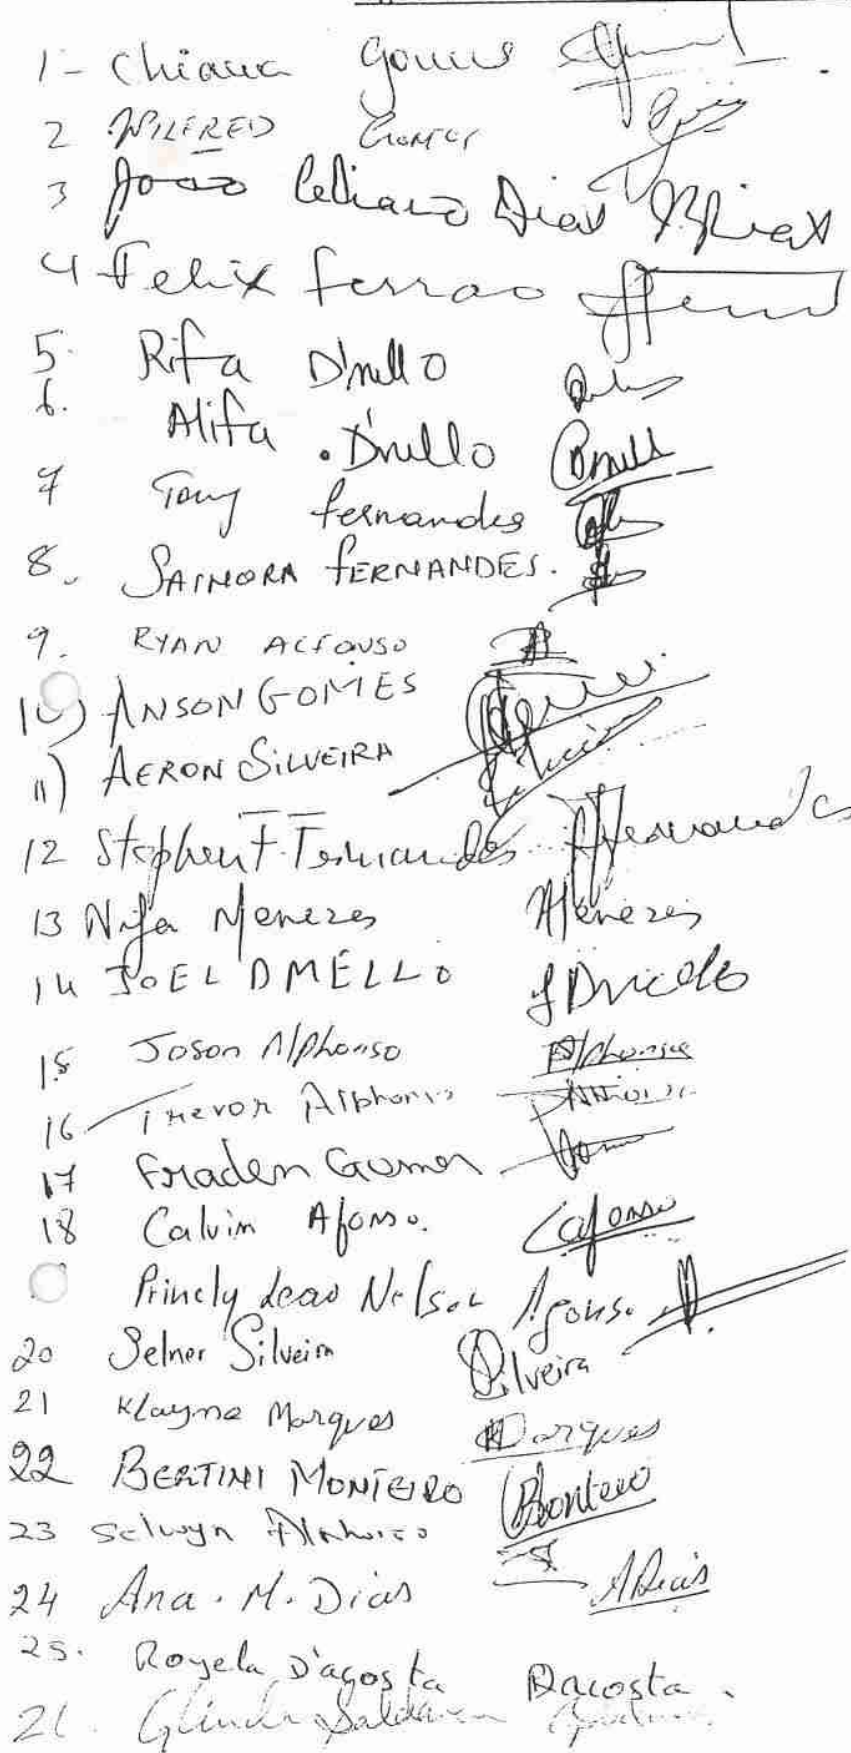 1- Chiara Gomes
2 WILFRED Gomes
3 João Celiano Dias BDias
4 Felix Ferrao
5. Rifa D'mello
6. Alifa . D'mello Dmell
7 Tony fernandes
8. SAINORA FERNANDES.
9. RYAN Alfonso
10) ANSON GOMES
11) AERON SILVEIRA
12 Stephen F. Fernandes Fernandes
13 Nifa Menezes Menezes
14 JOEL DMELLO JDmello
15 Joson Alphonso Alphonso
16 Trevor Alphonso
17 Fraden Gomes
18 Calvin Afonso. Cafonso
Princly Leao Nelson Afonso
20 Selner Silveira Silveira
21 Klayme Marques Marques
22 BERTINI MONTEIRO Bonteiro
23 Selwyn
24 Ana . M. Dias ADias
25. Royela D'acosta Dacosta
26. Glinda Saldana